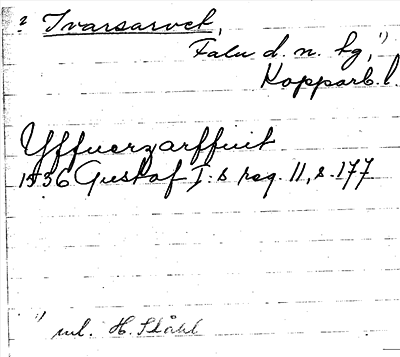 ? Ivarsarvet,
Falu d. n. lg, ¹)
Kopparb. l.
Yffuerzarffuit
1536 Gustaf I:s reg. 11, s. 177
¹) enl. H. Ståhl